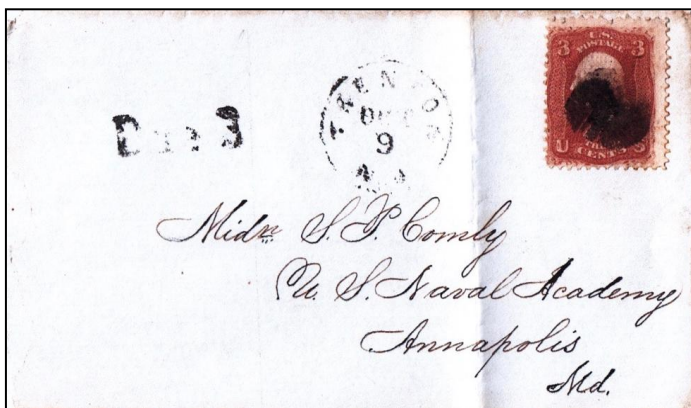 U.S.
POSTAGE
3 3
THREE
CENTS
U S
TRENTON
DEC
9
N.J.
Due 3
Midn S. P. Comly
U. S. Naval Academy
Annapolis
Md.